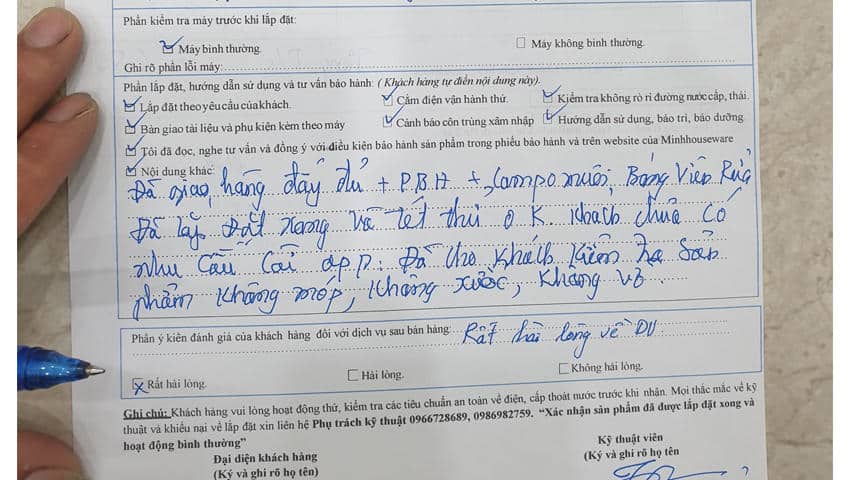 Phần kiểm tra máy trước khi lắp đặt:
Máy bình thường.
Máy không bình thường.
Ghi rõ phần lỗi máy:
Phần lắp đặt, hướng dẫn sử dụng và tư vấn bảo hành: ( Khách hàng tự điền nội dung này).
Lắp đặt theo yêu cầu của khách.
Cắm điện vận hành thử.
Kiểm tra không rò rỉ đường nước cấp, thải.
Bàn giao tài liệu và phụ kiện kèm theo máy
Cảnh báo côn trùng xâm nhập
Hướng dẫn sử dụng, bảo trì, bảo dưỡng.
Tôi đã đọc, nghe tư vấn và đồng ý với điều kiện bảo hành sản phẩm trong phiếu bảo hành và trên website của Minhhouseware
Nội dung khác:
Đã giao hàng đầy đủ + P.B.H + muối, Bóng, Viên Rửa
Đã lắp Đặt xong Và tét thử O K. Khách chưa Có
nhu Cầu Cài app. Đã cho Khách Kiểm tra Sản
phẩm Không móp, Không xước, Không vỡ.
Phần ý kiến đánh giá của khách hàng đối với dịch vụ sau bán hàng: Rất hài lòng về DV
Rất hài lòng.
Hài lòng.
Không hài lòng.
Ghi chú: Khách hàng vui lòng hoạt động thử, kiểm tra các tiêu chuẩn an toàn về điện, cấp thoát nước trước khi nhận. Mọi thắc mắc về kỹ
thuật và khiếu nại về lắp đặt xin liên hệ Phụ trách kỹ thuật 0966728689, 0986982759. “Xác nhận sản phẩm đã được lắp đặt xong và
hoạt động bình thường”
Đại diện khách hàng
(Ký và ghi rõ họ tên)
Kỹ thuật viên
(Ký và ghi rõ họ tên